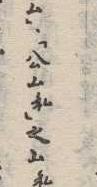 山」、「公山私」之山私